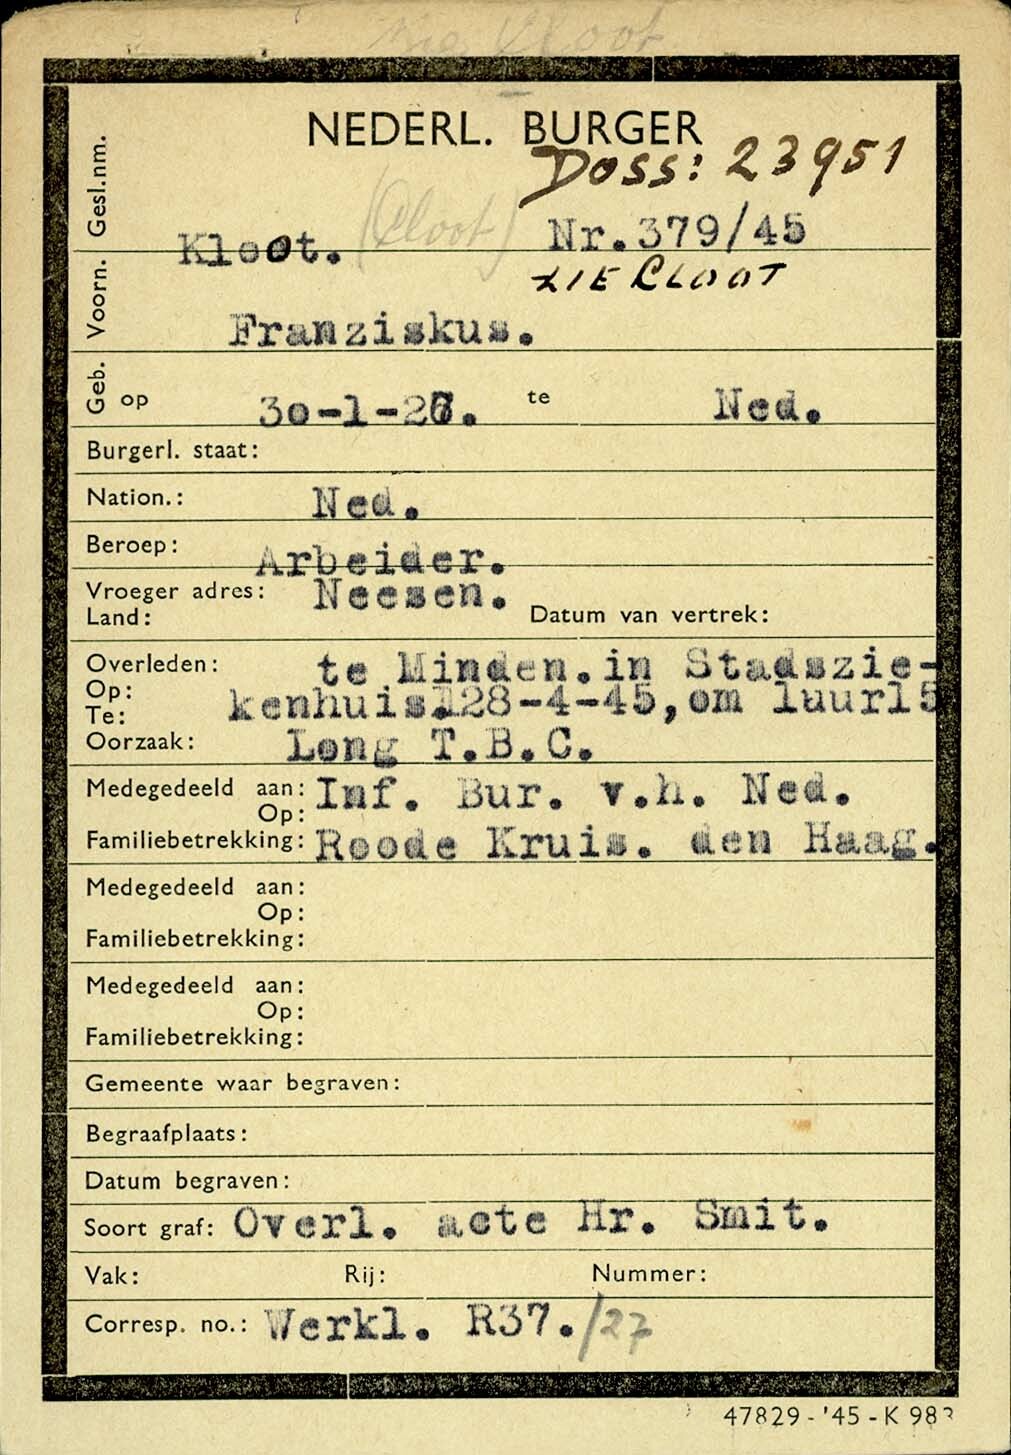 zie Cloot
NEDERL. BURGER
Doss: 23951
Gesl.nm. Kloot. (Cloot) Nr.379/45
ZIE CLOOT
Voorn. Franziskus.
Geb. op 30-1-26. te Ned.
Burgerl. staat:
Nation.: Ned.
Beroep: Arbeider.
Vroeger adres: Neesen.
Land: Datum van vertrek:
Overleden: te Minden.in Stadszie-
Op: kenhuis.128-4-45,om 1uur15
Te:
Oorzaak: Long T.B.C.
Medegedeeld aan: Inf. Bur. v.h. Ned.
Op:
Familiebetrekking: Roode Kruis. den Haag.
Medegedeeld aan:
Op:
Familiebetrekking:
Medegedeeld aan:
Op:
Familiebetrekking:
Gemeente waar begraven:
Begraafplaats:
Datum begraven:
Soort graf: Overl. acte Hr. Smit.
Vak: Rij: Nummer:
Corresp. no.: Werkl. R37./27
47829-'45-K 983